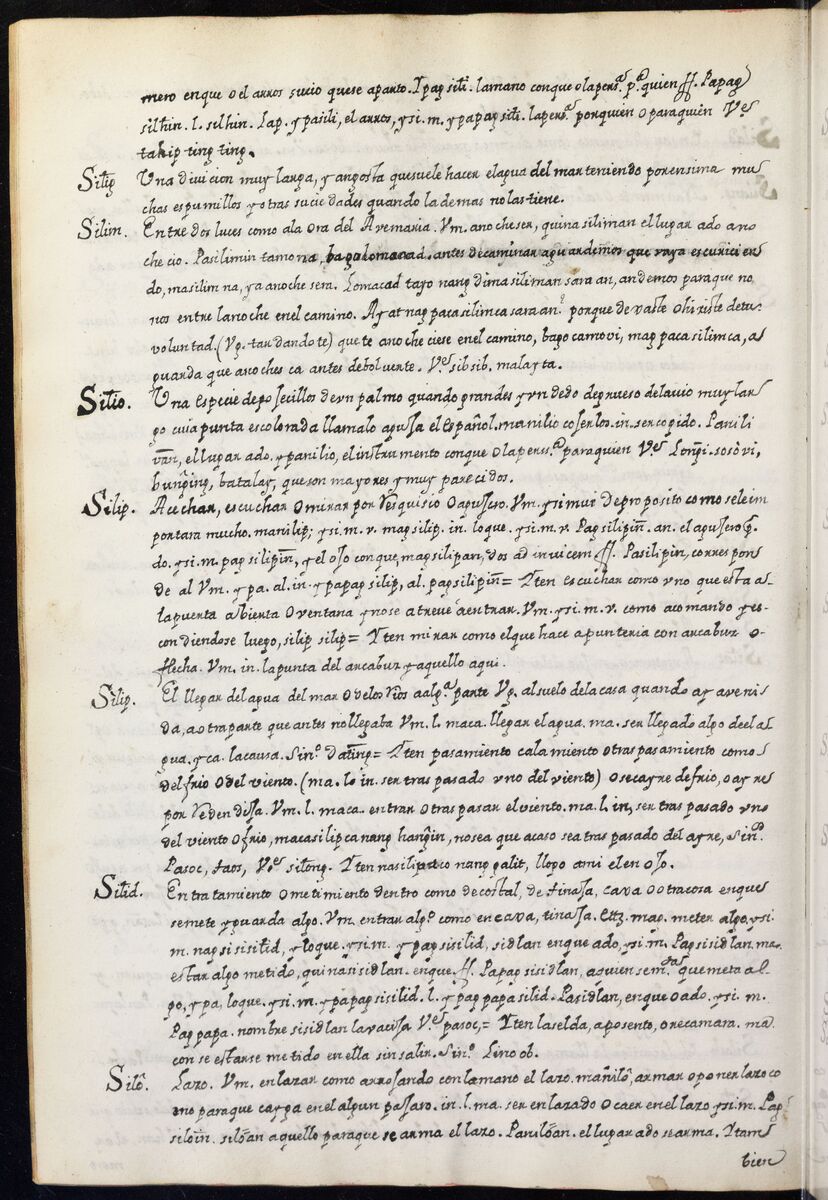 mero enque o el arros sucio quese aparto. Ypag siti. lamano conque olapers.ª p.ª quien ff. Papag
silhin. l. silhin. Iap. ypasili, el arros, ysi. m. ypapag siti. lapers.ª porquien oparaquien V.es
tahip ting ting.
Silig Una divicion muy larga, y angosta quesuele hacer elagua del mar teniendo porensima mu
chas espumillos y otras suciedades quando la demas nolas tiene.
Silim. Entre dos luces como ala Ora del Avemaria. Vm. anocheser, quinasiliman el lugar ado ano
che cio. Pasilimin tamo na, bago lomacad. antes decaminar aguardemos que vaya escuricien
do, masilim na, ya anoche sera. Lomacad tayo nang dimasiliman sara an, andemos paraque no
nos entre lanoche enel camino. Ayat nag pacasilimca sara an? porque devaste ohiziste detu
voluntad. (Vg. tardandote) que te anocheciese enel camino, bago camovi, mag pacasilimca, a
guarda que anochesca antes debolverte. V.es sibsib. malayta.
Silio. Una especie depesecillos deun palmo quando grandes y un dedo degrueso delavio muy lar
go cuia punta es colorada llamalo aguja el Español. manilio coserlos. in. ser cogido. Panili
van, el lugar ado. ypanilio, el instrumento conque olaperss.ª paraquien V.es Longi. sosòvi,
bunging, batalay, que son mayores y muy parecidos.
Silip. Acechar, escuchar o mirar por resquisio o agujero. Vm. ysi mui deproposito como sele im
portara mucho. manilip; ysi. m. v. magsilip. in. loque. ysi. m. v. Pagsilipin. an. el agujero q.
do. ysi. m. pagsilipin, y el ojo conque, magsilipan, dos ad invicem ff. Pasilipin, correspon
de al Vm. ypa. al. in. ypapag silip, al. pagsilipin = Yten escuchar como uno que esta a
lapuerta abierta o ventana ynose atreve aentrar. Vm. ysi. m. v. como acomando yes
condiendose luego, silip silip = Yten mirar como elque hace apunteria con arcabuz o
flecha. Vm. in. lapunta del arcabuz y aquello aqui.
Silip. El llegar delagua del mar o delos rios aalg.ª parte Vg. al suelo dela casa quando ay aveni
da, a otra parte que antes no llegaba Vm. l. maca. llegar el agua. ma. ser llegado algo deel a
gua, yca. lacausa. Sin.º dating = Yten pasamiento calamiento otraspasamiento como
del frio o del viento. (ma. lo in. ser traspasado uno del viento) o secayre defrio, oayre
por rendija. Vm. l. maca. entrar o traspasar el viento. ma. l. in, ser traspasado uno
del viento o frio, macasilipca nang hangin, nosea que acaso sea traspasado del ayre, Sin.º
Pasoc, taos, V.es silong. Yten nasilip co nang galit, llego ami el enojo.
Silid. Entratamiento o metimiento dentro como decostal, de tinaja, cava o otra cosa enque
semete yguarda algo. Vm. entrar alg.º como en cava, tinaja. Ettz. mag. meter algo, ysi.
m. nagsisisilid, yloque. ysi. m. ypagsisilid, sidlan enque ado, ysi. m. Pagsisidlan. ma.
estar algo metido, quinasisidlan. enque ff. Papag sisidlan, aquien sem.da quemeta al
go, ypa, loque. ysi. m. ypapagsisilid. l. ypagpapasilid. Pasidlan, enque o ado. ysi. m.
Pagpapa. nombre sisidlan lavacija V.es pasoc, = Yten laselda, aposento, orecamara. ma.
con se estarse metido en ella sin salir. Sin.º Linoob.
Silò. Lazo. Vm. enlazar como arrojando conlamano el lazo. manilò, armar oponer lazo co
mo paraque cayga en el algun pajaro. in. l. ma. ser enlazado o caer en el lazo ysi. m. Pag
siloin. siloan aquello paraque se arma el lazo. Paniloan. el lugar ado se arma. Ytam
bien